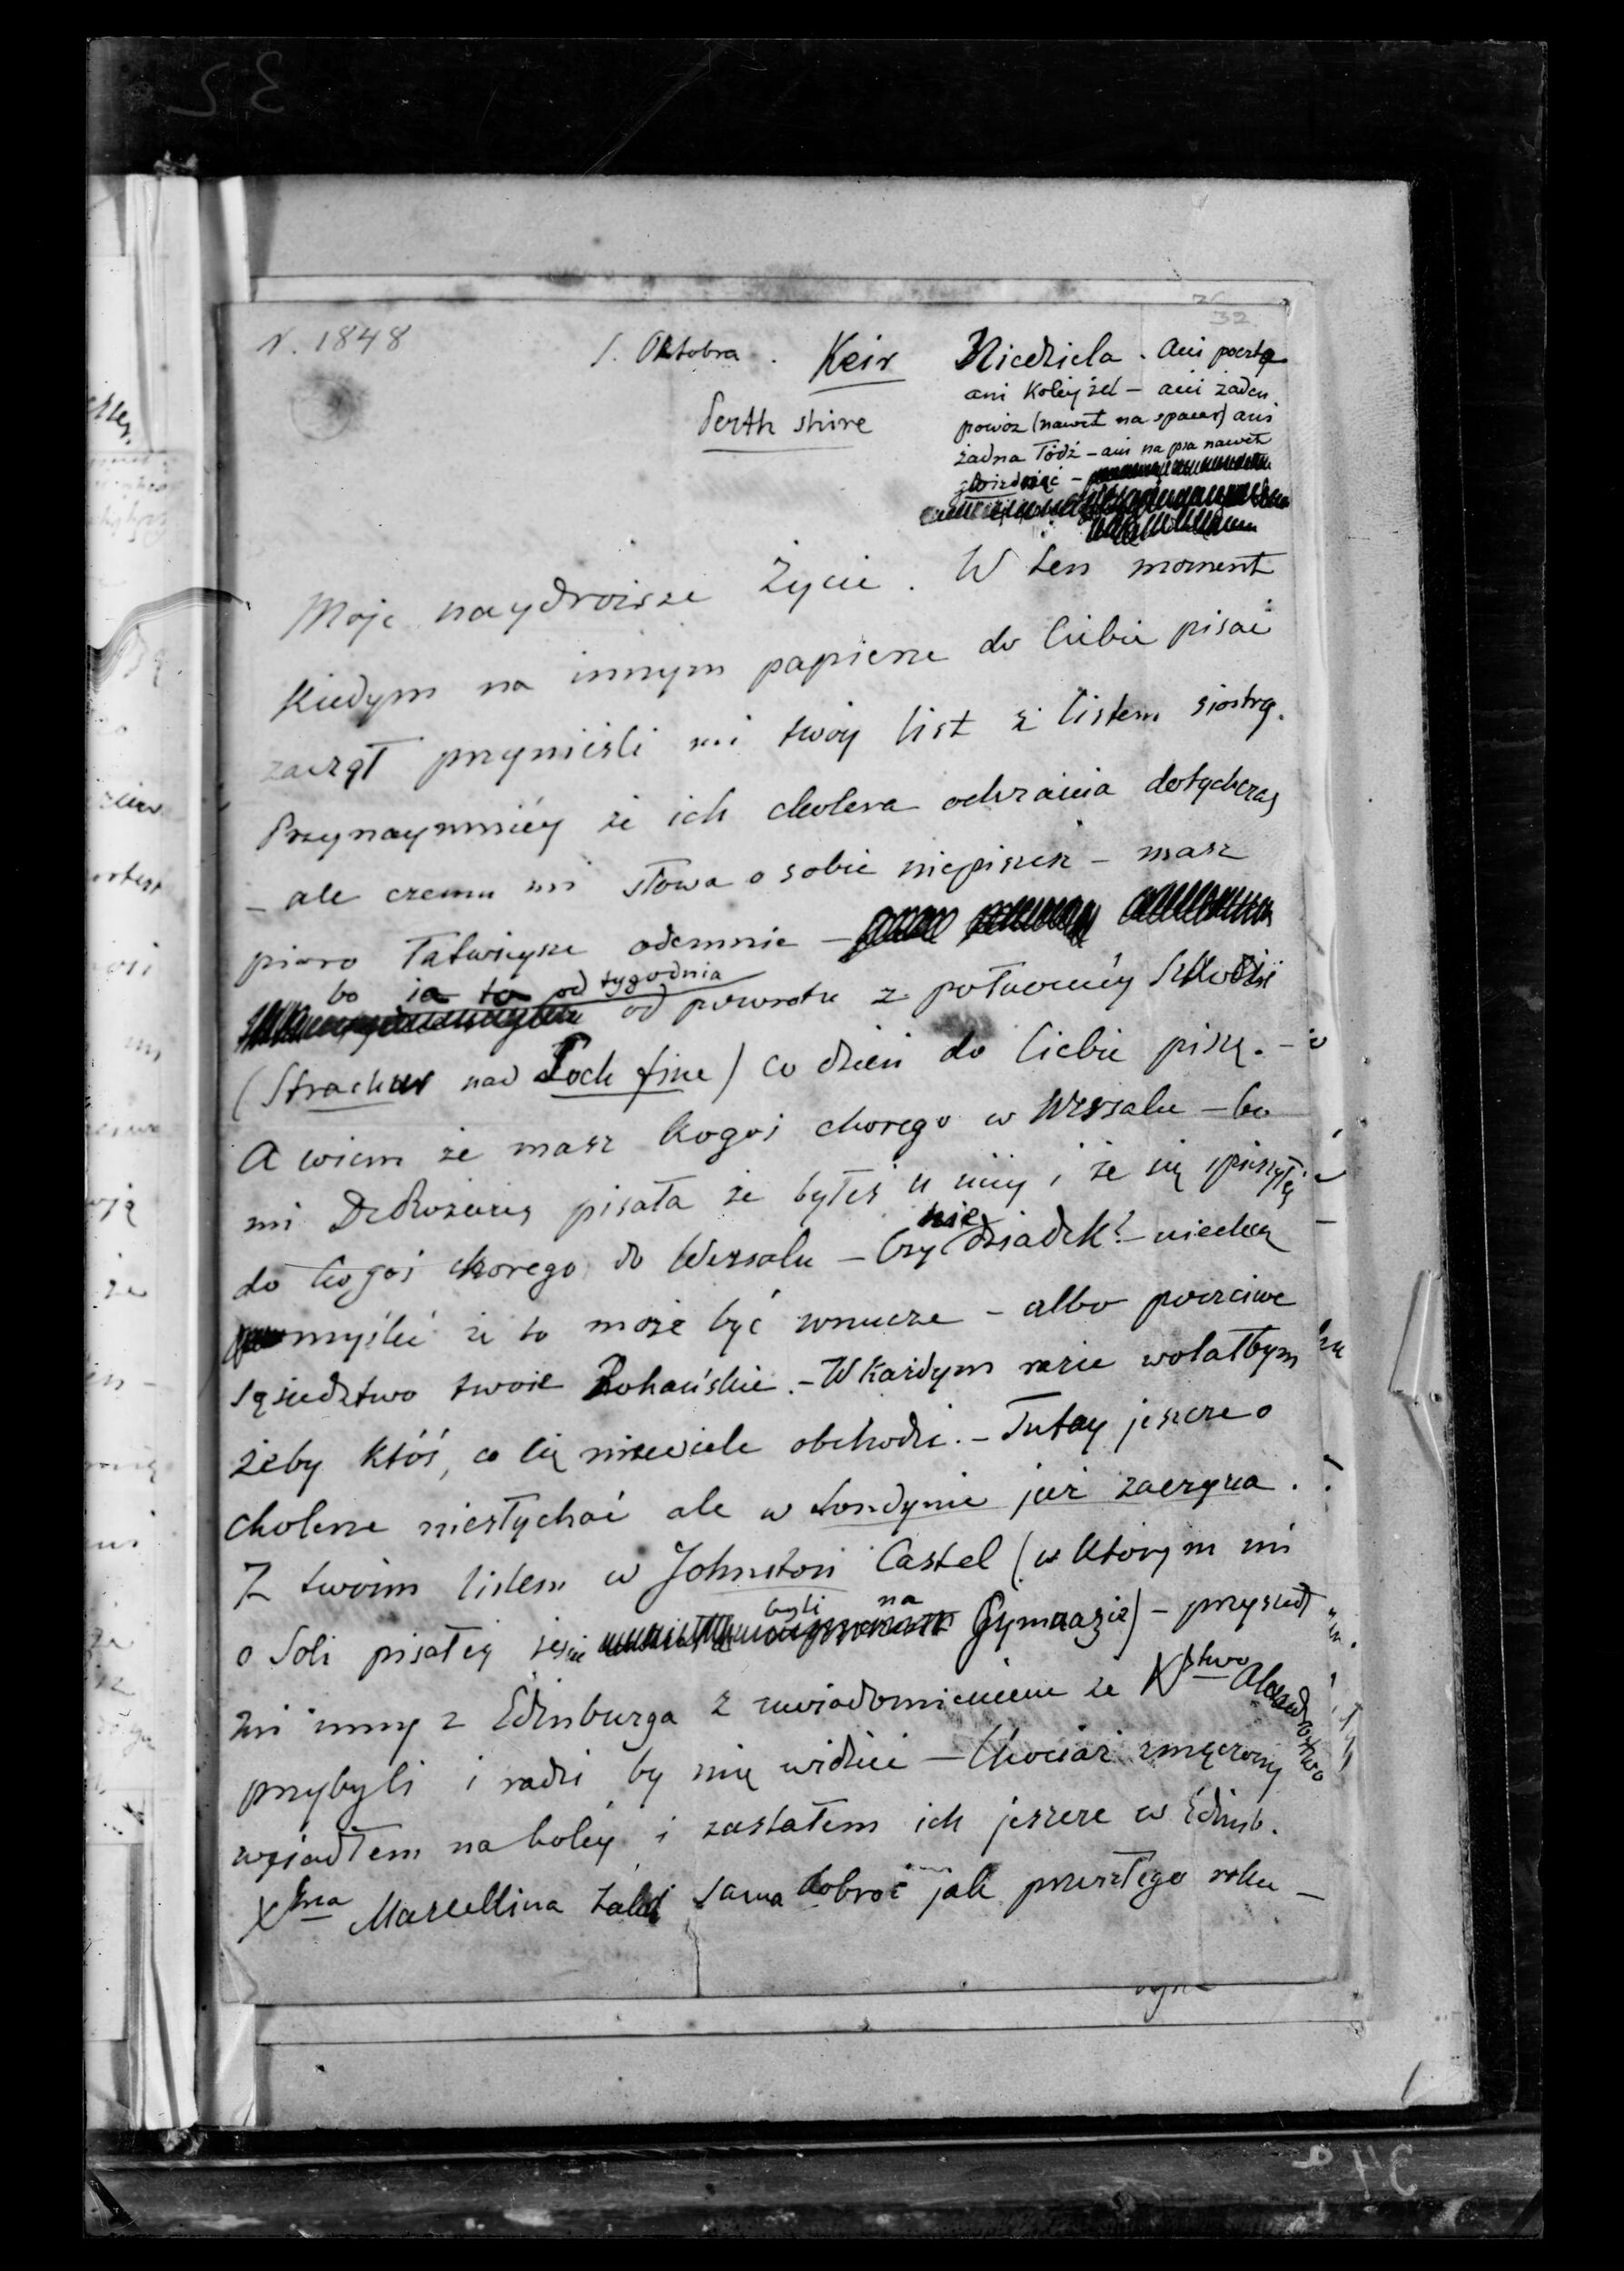 r. 1848
32
1. Oktobra. Keir
Perth shire
Niedziela. Ani poczty
ani kolej żel – ani żaden
powóz (nawet na spacer) ani
żadna łódź – ani na psa nawet
gwizdnąć –
Moje naydroższe Życie. W ten moment
kiedym na innym papierze do Ciebie pisać
zaczął przynieśli mi twóy list z listem siostry.
Przynaymniéy że ich cholera ochrania dotychczas
– ale czemu mi słowa o sobie niepiszesz – masz
pióro łatwieysze odemnie –
bo ja to od tygodnia
od powrotu z północnéy Szkocji
(Strachur nad Loch fine) co dzień do Ciebie piszę. –
A wiem że masz kogoś chorego w Wersalu – bo
mi De Rozieres pisała że byłeś u niéy i że się spieszyłeś
do kogoś chorego do Wersalu – Czy nie dziadek? – niechcę
myśleć że to może być wnucze – albo poczciwe
sąsiedztwo twoie Rohańskie. – W każdym razie wolałbym
żeby ktoś, co Cię niewiele obchodzi. – Tutay jeszcze o
cholerze niesłychać ale w Londynie już zaczyna.
Z twoim listem w Johnston Castel (w którym mi
o Soli pisałeś żeście byli na Gymnazie) – przyszedł
mi inny z Edinburga z uwiadomieniem że Xstwo Alexandrostwo
przybyli i radzi by mię widzieć – Chociaż zmęczony
wsiadłem na koléy i zastałem ich jeszcze w Edimb.
Xżna Marcellina taka sama dobroć jak przeszłego roku –
34 a